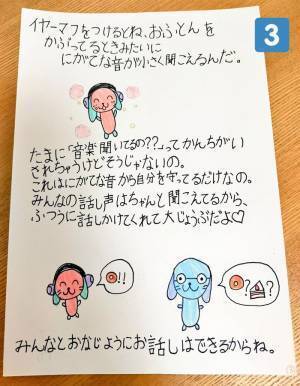 3
イヤーマフをつけるとね、おふとんを
かぶってるときみたいに
にがてな音が小さく聞こえるんだ。
たまに「音楽聞いてるの??」ってかんちがい
されちゃうけどそうじゃないの。
これはにがてな音から自分を守ってるだけなの。
みんなの話し声はちゃんと聞こえてるから、
ふつうに話しかけてくれて大じょうぶだよ♡
!!
?
?
みんなとおなじようにお話しはできるからね。